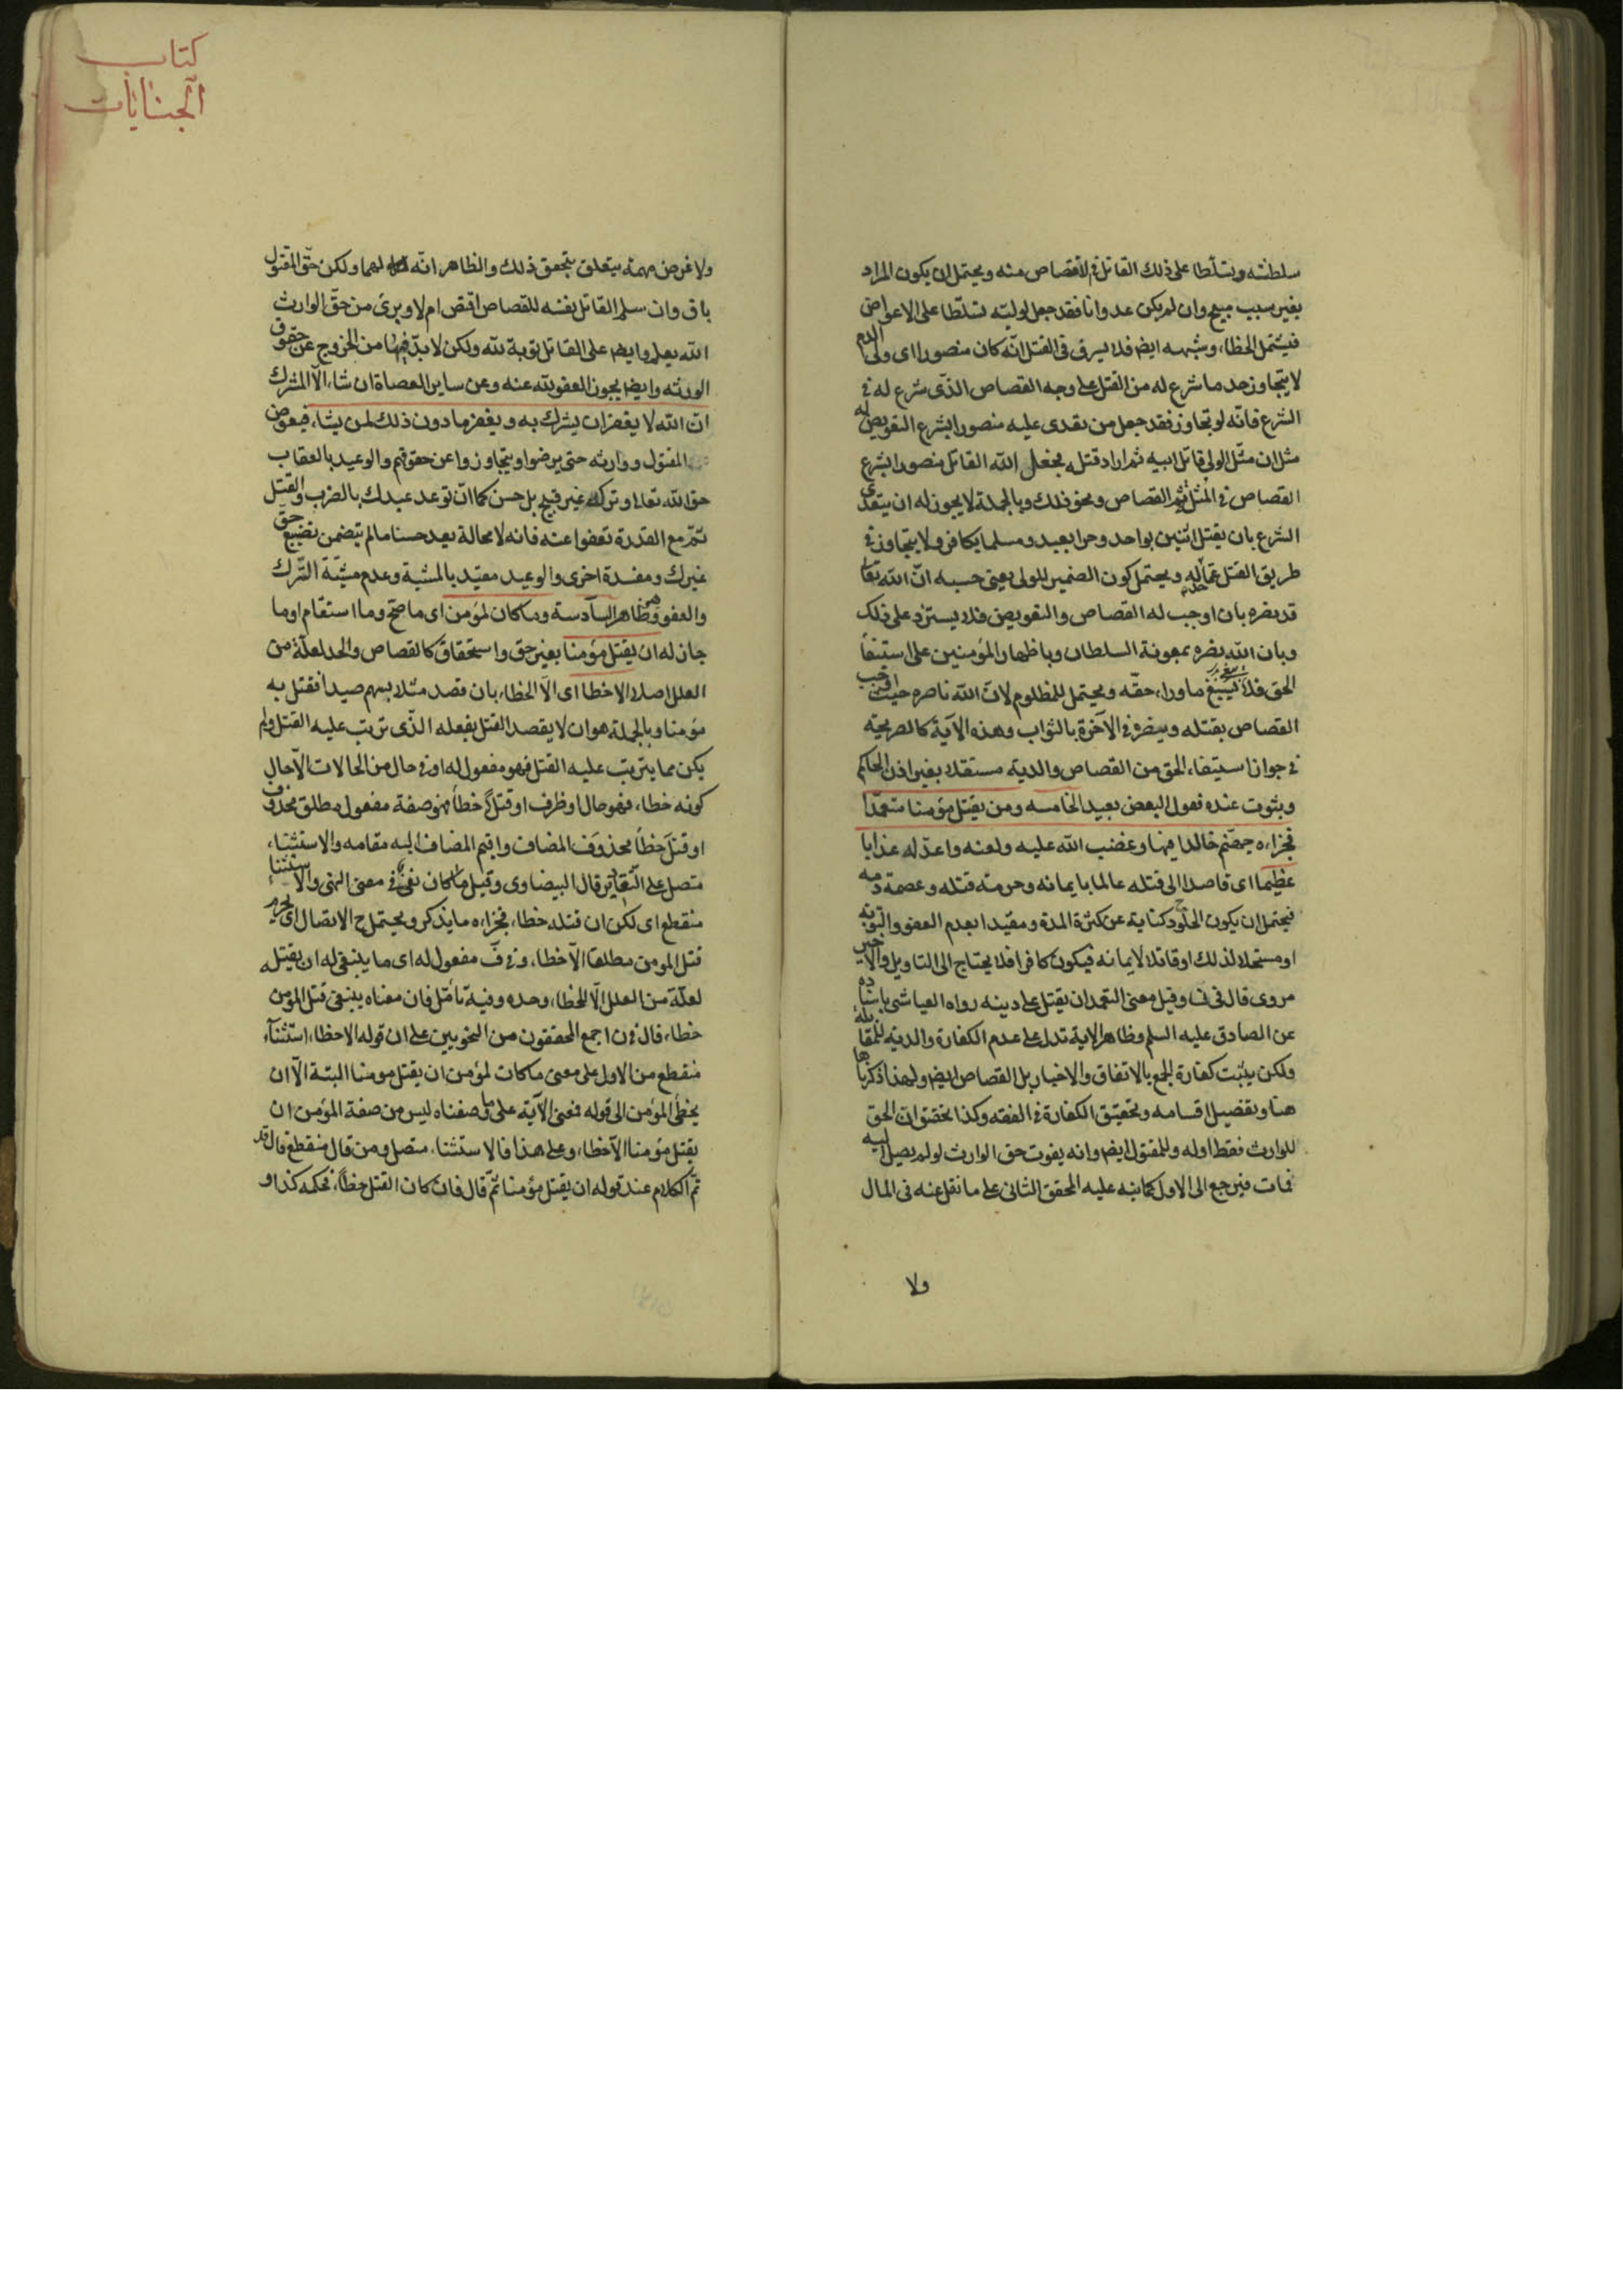 سلطنة وتسلطا على ذلك القاتل في الاقتصاص منه ويحتمل ان يكون المراد
بغير سبب مبيح وان لم يكن عدوانا فقد جعل لوليه تسلطا على الاعواض
فيشمل الخطاء وشبهه ايض فلا يسرف في القتل انه كان منصورا اى ولى الدم
لا يتجاوز حد ما شرع له من القتل على وجه القصاص الذى شرع له في
الشرع فانه لو تجاوز فقد جعل من تعدى عليه منصورا بشرع التعويض له
مثل ان مثل الولى قاتل ابيه ثم اراد قتله يجعل الله القاتل منصورا بشرع
القصاص في المثل ثم القصاص ونحو ذلك وبالجملة لا يجوز له ان يتعدى
الشرع بان يقتل اثنين بواحد وحرا بعبد ومسلما بكافر ولا يتجاوز في
طريق القتل عما له ويحتمل كون الضمير للولى يعنى حسبه ان الله تعالى
قد نصره بان اوجب له القصاص والتعويض فلا يستزد على ذلك
وبان الله نصره بمعونة السلطان وباظهار المؤمنين على استيفاء
الحق فلا يبغ ما وراء حقه ويحتمل للمظلوم لان الله ناصره حيث اوجب
القصاص بقتله وينصره في الآخرة بالثواب وهذه الآية كالصريحة
في جواز استيفاء الحق من القصاص والدية مستقلا بغير اذن الحاكم
وثبوت عنده فقول البعض بعيد الخامسه ومن يقتل مؤمنا متعمدا
فجزاءه جهنم خالدا فيها وغضب الله عليه ولعنه واعد له عذابا
عظيما اى قاصدا الى قتله عالما بايمانه وحرمة قتله وعصمة دمه
فيحتمل ان يكون الخلود كناية عن كثرة المدة ومقيدا بعدم العفو والتوبه
او مستحلا لذلك او قاتلا لايمانه فيكون كافرا فلا يحتاج الى التاويل والاخير
مروى قال في ف وقيل معنى التعمد ان يقتل على دينه رواه العياشى باسناده
عن الصادق عليه السلم وظاهر الاية تدل على عدم الكفارة والدية للمقابلة
ولكن يثبت كفارة الجمع بالاتفاق والاخبار بل القصاص ايض ولهذا ذكرناها
هنا وتفصيل اقسامه وتحقيق الكفارة في الفقه وكذا تحقق ان الحق
للوارث فقط اوله وللمقتول ايض وانه يفوت حق الوارث لو لم يصل اليه
فمات فيرجع الى الاول كما نبه عليه المحقق الثانى على ما نقل عنه في المال
ولا
كتاب
الجنايات
ولا غرض مهمة يتعلق بتحقق ذلك والظاهر انه لهما ولكن حق المقتول
باق وان سلم القاتل نفسه للقصاص اقتص ام لا وبرئ من حق الوارث
الله يعلم وايض على القاتل توبة لله ولكن لا بد فيها من الخروج عن حقوق
الورثه وايض يجوز العفو لله عنه وعن ساير العصاة ان شاء الا المشرك
ان الله لا يغفر ان يشرك به ويغفر ما دون ذلك لمن يشاء فيعوض
المقتول ووارثه حتى يرضوا ويتجاوزوا عن حقوقهم والوعيد بالعقاب
حق الله تعالى وتركه غير قبيح بل حسن كما ان توعد عبدك بالضرب والقتل
ثم مع القدرة تعفوا عنه فانه لا محالة يعد حسنا ما لم يتضمن تضييع حق
غيرك ومفسدة اخرى والوعيد مقيد بالمشية وعدم مشية الترك
والعفو وهى ظاهر السادسة وما كان لمؤمن اى ما صح وما استقام او ما
جاز له ان يقتل مؤمنا بغير حق واستحقاق كالقصاص والحد لعلة من
العلل اصلا الا خطا اى الا الخطاء بان قصد مثلا بسهم صيدا فقتل به
مؤمنا وبالجملة هو ان لا يقصد القتل بفعله الذى ترتب عليه القتل ولم
يكن مما يترتب عليه القتل فهو مفعول له او في حال من الحالات الا حال
كونه خطاء فهو حال او ظرف او قتلا خطأ فهو صفة مفعول مطلق محذوف
او قتل خطأ بحذف المضاف واقيم المضاف اليه مقامه والاستثناء
متصل على التقادير قال البيضاوى وقيل ما كان نفى في معنى النهى والاستثناء
منقطع اى لكن ان قتله خطاء فجزاءه ما يذكر ويحتمل ح الاتصال اى يحرم
قتل المومن مطلقا الا خطاء وفي ف مفعول له اى ما ينبغى له ان يقتله
لعلة من العلل الا للخطاء وحده وفيه تأمل فان معناه ينبغى قتل المؤمن
خطاء قال في ن اجمع المحققون من النحويين على ان قوله الا خطاء استثناء
منقطع من الاول على معنى ما كان لمؤمن ان يقتل مومنا البتة الا ان
يخطأ المؤمن الى قوله فمعنى الآية على ما وصفناه ليس من صفة المؤمن ان
يقتل مؤمنا الا خطاء وعلى هذا فالاستثناء متصل ومن قال منقطع قال قد
تم الكلام عند قوله ان يقتل مؤمنا ثم قال فان كان القتل خطأ فحكمه كذا و